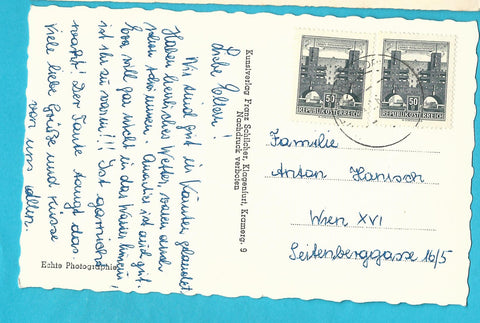 Liebe Eltern!
Wir sind gut in Kärnten gelandet.
Haben herrliches Wetter, waren auch
schon schwimmen. Quartier ist auch gut.
will gar nicht in das Wasser hinein,
ist ihr zu warm!!! Ist garnicht
wahr! Der Tante taugt das.
Viele liebe Grüße und Küsse
von uns allen.
Echte Photographie
Kunstverlag Franz Schilcher, Klagenfurt, Kramerg. 9
Nachdruck verboten
50
REPUBLIK ÖSTERREICH
50
REPUBLIK ÖSTERREICH
Familie
Anton Hanisch
Wien XVI
Seitenberggasse 16/5